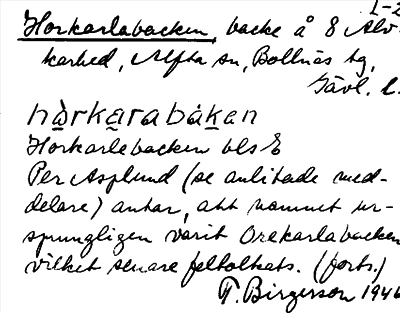 1-2
Horkarlabacken, backe å 8 Alv-
karhed, Alfta sn, Bollnäs tg,
Gävl. l.
hàrkarabàkan
Horkarlebacken bls E
Per Asplund (se anlitade med-
delare) antar, att namnet ur-
sprungligen varit Orekarlabacken
vilket senare feltolkats. (forts.)
F. Birgerson 1946